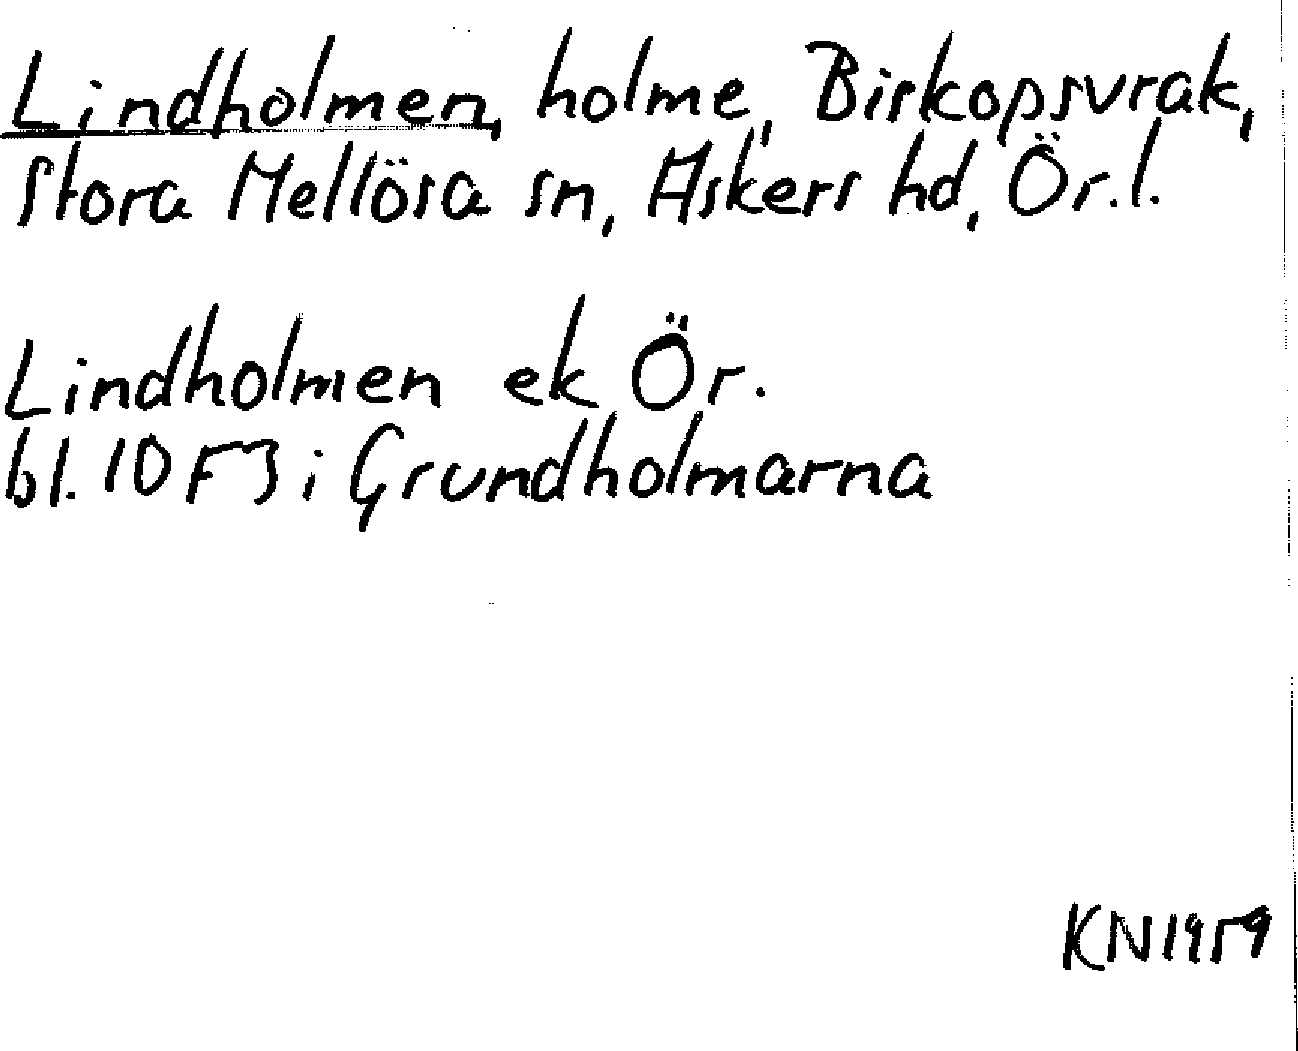 Lindholmen, holme, Biskopsvrak,
Stora Mellösa sn, Askers hd, Ör. l.
Lindholmen ek Ör.
bl. 10 F3 i Grundholmarna
KN 1959